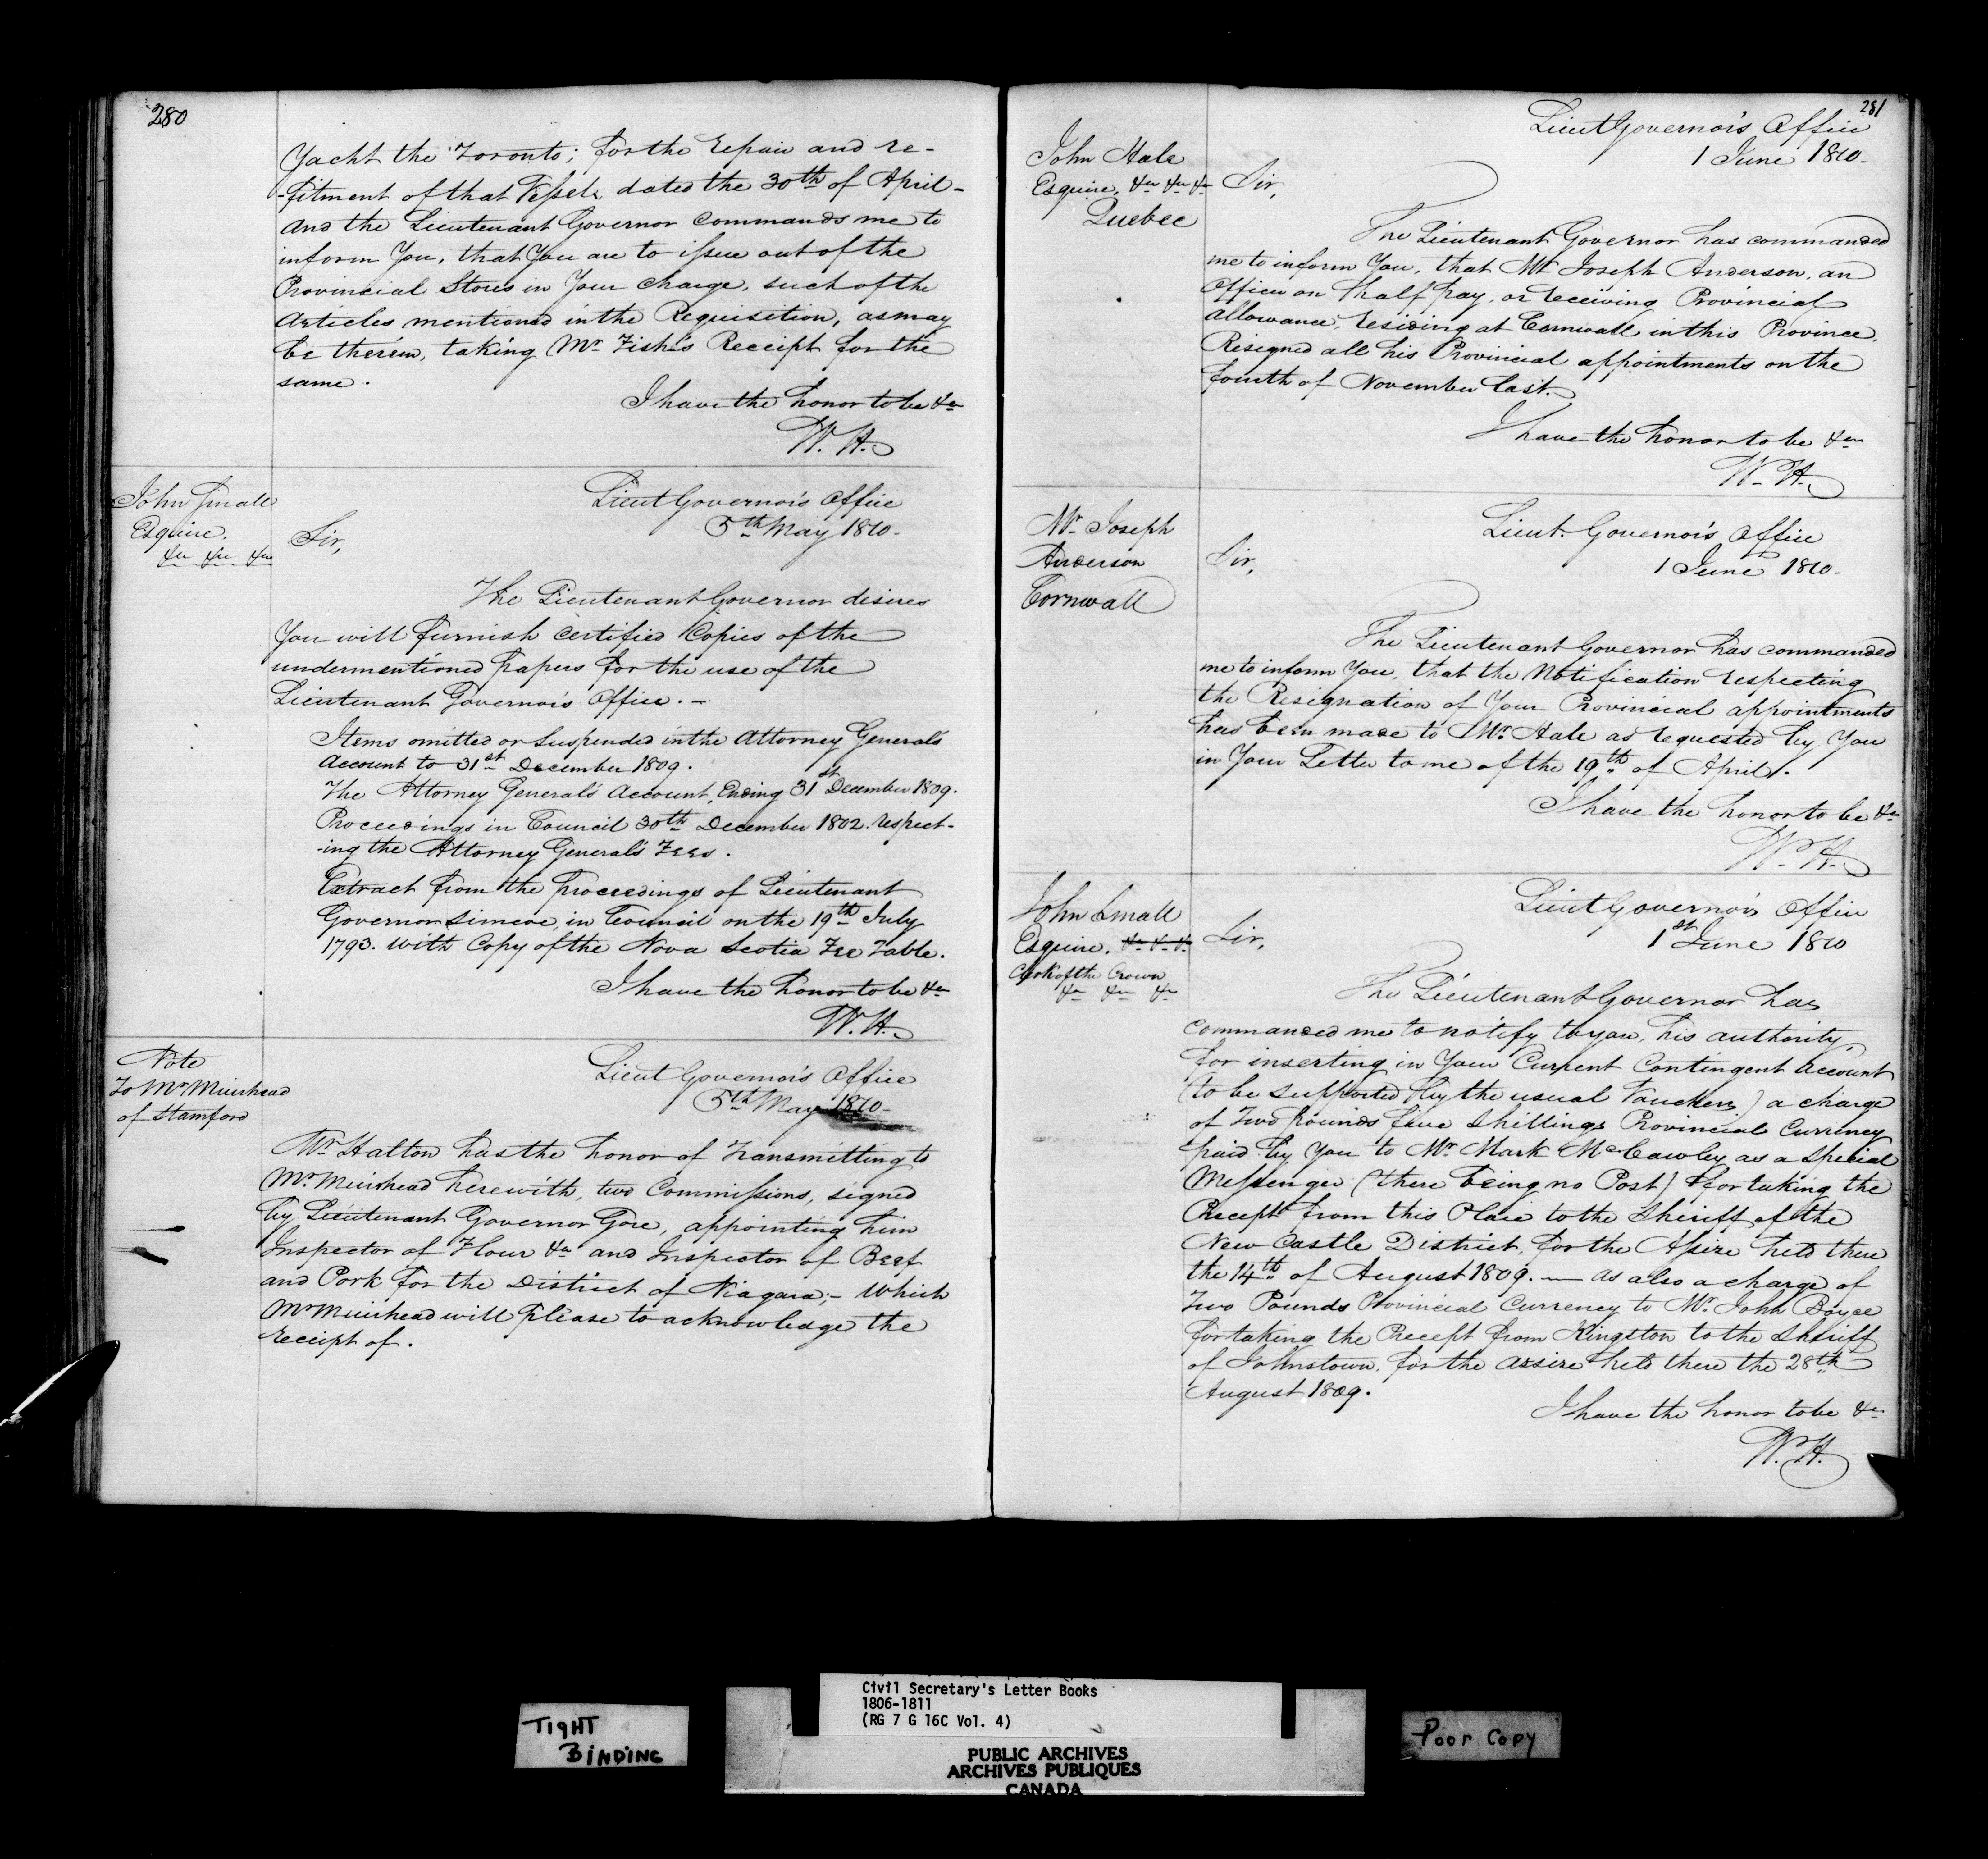 280
Yacht the Toronto; for the repair and re-
-fitment of that Vessel, dated the 30th of April -
and the Lieutenant Governor commands me to
inform You, that You are to issue out of the
Provincial Stores in Your charge, such of the
Articles mentioned in the Requisition, as may
be therein, taking Mr Fish's Receipt for the
same.
I have the honor to be &c
W. H.
John Small
Esquire.
&c &c &c
Lieut Governor's Office
5th May 1810-
Sir,
The Lieutenant Governor desires
You will furnish certified Copies of the
undermentioned papers for the use of the
Lieutenant Governor's Office. -
Items omitted or Suspended in the Attorney General's
Account to 31st December 1809.
The Attorney General's Account, Ending 31st December 1809.
Proceedings in Council 30th December 1802. respect-
-ing the Attorney General's Fees.
Extract from the proceedings of Lieutenant
Governor Simcoe, in Council on the 19th July
1793. with Copy of the Nova Scotia Fee Table.
I have the honor to be &c
W. H.
Note
To Mr Muirhead
of Stamford
Lieut Governor's Office
5th May 1810-
Mr Halton has the honor of Transmitting to
Mr Muirhead herewith, two Commissions, signed
by Lieutenant Governor Gore, appointing him
Inspector of Flour &c and Inspector of Beef
and Pork for the District of Niagara;- which
Mr Muirhead will please to acknowledge the
receipt of.
281
Lieut Governor's Office
1 June 1810-
John Hale
Esquire, &c &c &c
Quebec
Sir,
The Lieutenant Governor has commanded
me to inform You, that Mr Joseph Anderson, an
Officer on half pay, or receiving Provincial
allowance, residing at Cornwall in this Province,
Resigned all his Provincial appointments on the
fourth of November last.
I have the honor to be &c
W. H.
Mr Joseph
Anderson
Cornwall
Lieut. Governor's Office
1 June 1810-
Sir,
The Lieutenant Governor has commanded
me to inform You, that the Notification respecting
the Resignation of Your Provincial appointments
has been made to Mr. Hale as requested by You
in Your Letter to me of the 19th of April.
I have the honor to be &c
W. H.
John Small
Esquire, &c &c &c
Clerk of the Crown
&c &c &c
Lieut Governor's Office
1st June 1810
Sir,
The Lieutenant Governor has
commanded me to notify to you, his authority,
for inserting in Your Current Contingent Account
(to be supported by the usual Vouchers) a charge
of Two pounds five Shillings Provincial Currency
paid by You to Mr Mark McCawley as a Special
Messenger (there being no Post) for taking the
Precept from this Place to the Sheriff of the
New Castle District, for the Assize held there
the 14th of August 1809. — as also a charge of
Two Pounds Provincial Currency to Mr. John Boyce
for taking the Precept from Kingston to the Sheriff
of Johnstown, for the assize held there the 28th
August 1809.
I have the honor to be &c
W. H.
TIGHT
BINDING
Civil Secretary's Letter Books
1806-1811
(RG 7 G 16C Vol. 4)
PUBLIC ARCHIVES
ARCHIVES PUBLIQUES
CANADA
Poor Copy